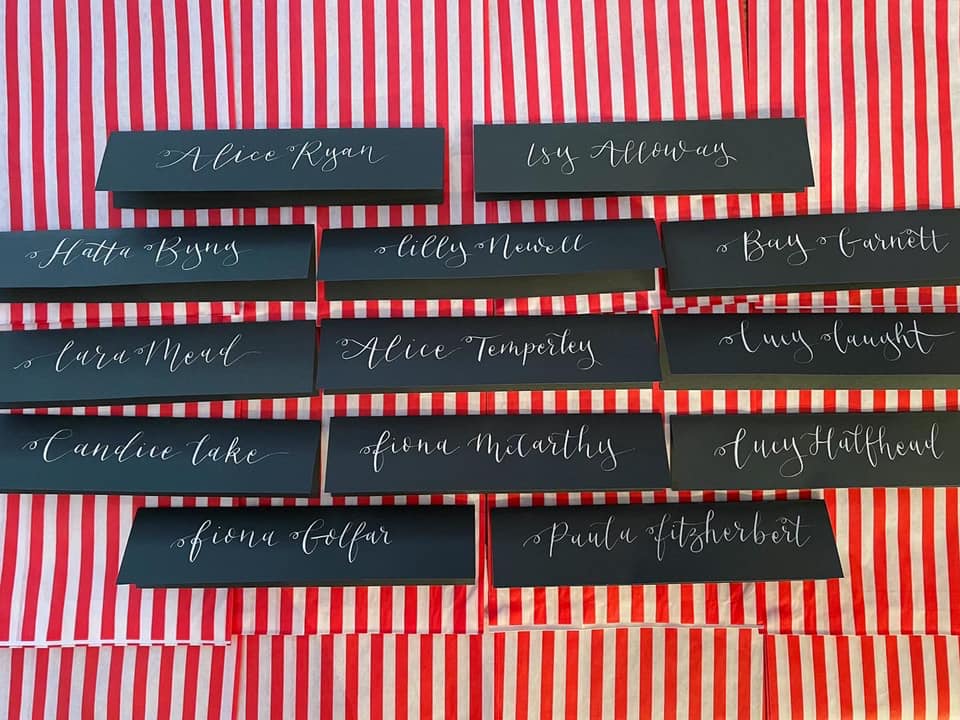 Alice Ryan
Isy Alloway
Hatta Byng
Lilly Newell
Bay Garnett
Lara Mead
Alice Temperley
Lucy
Candice Lake
Fiona McCarthy
Lucy Halfhead
Fiona Golfar
Paula Fitzherbert